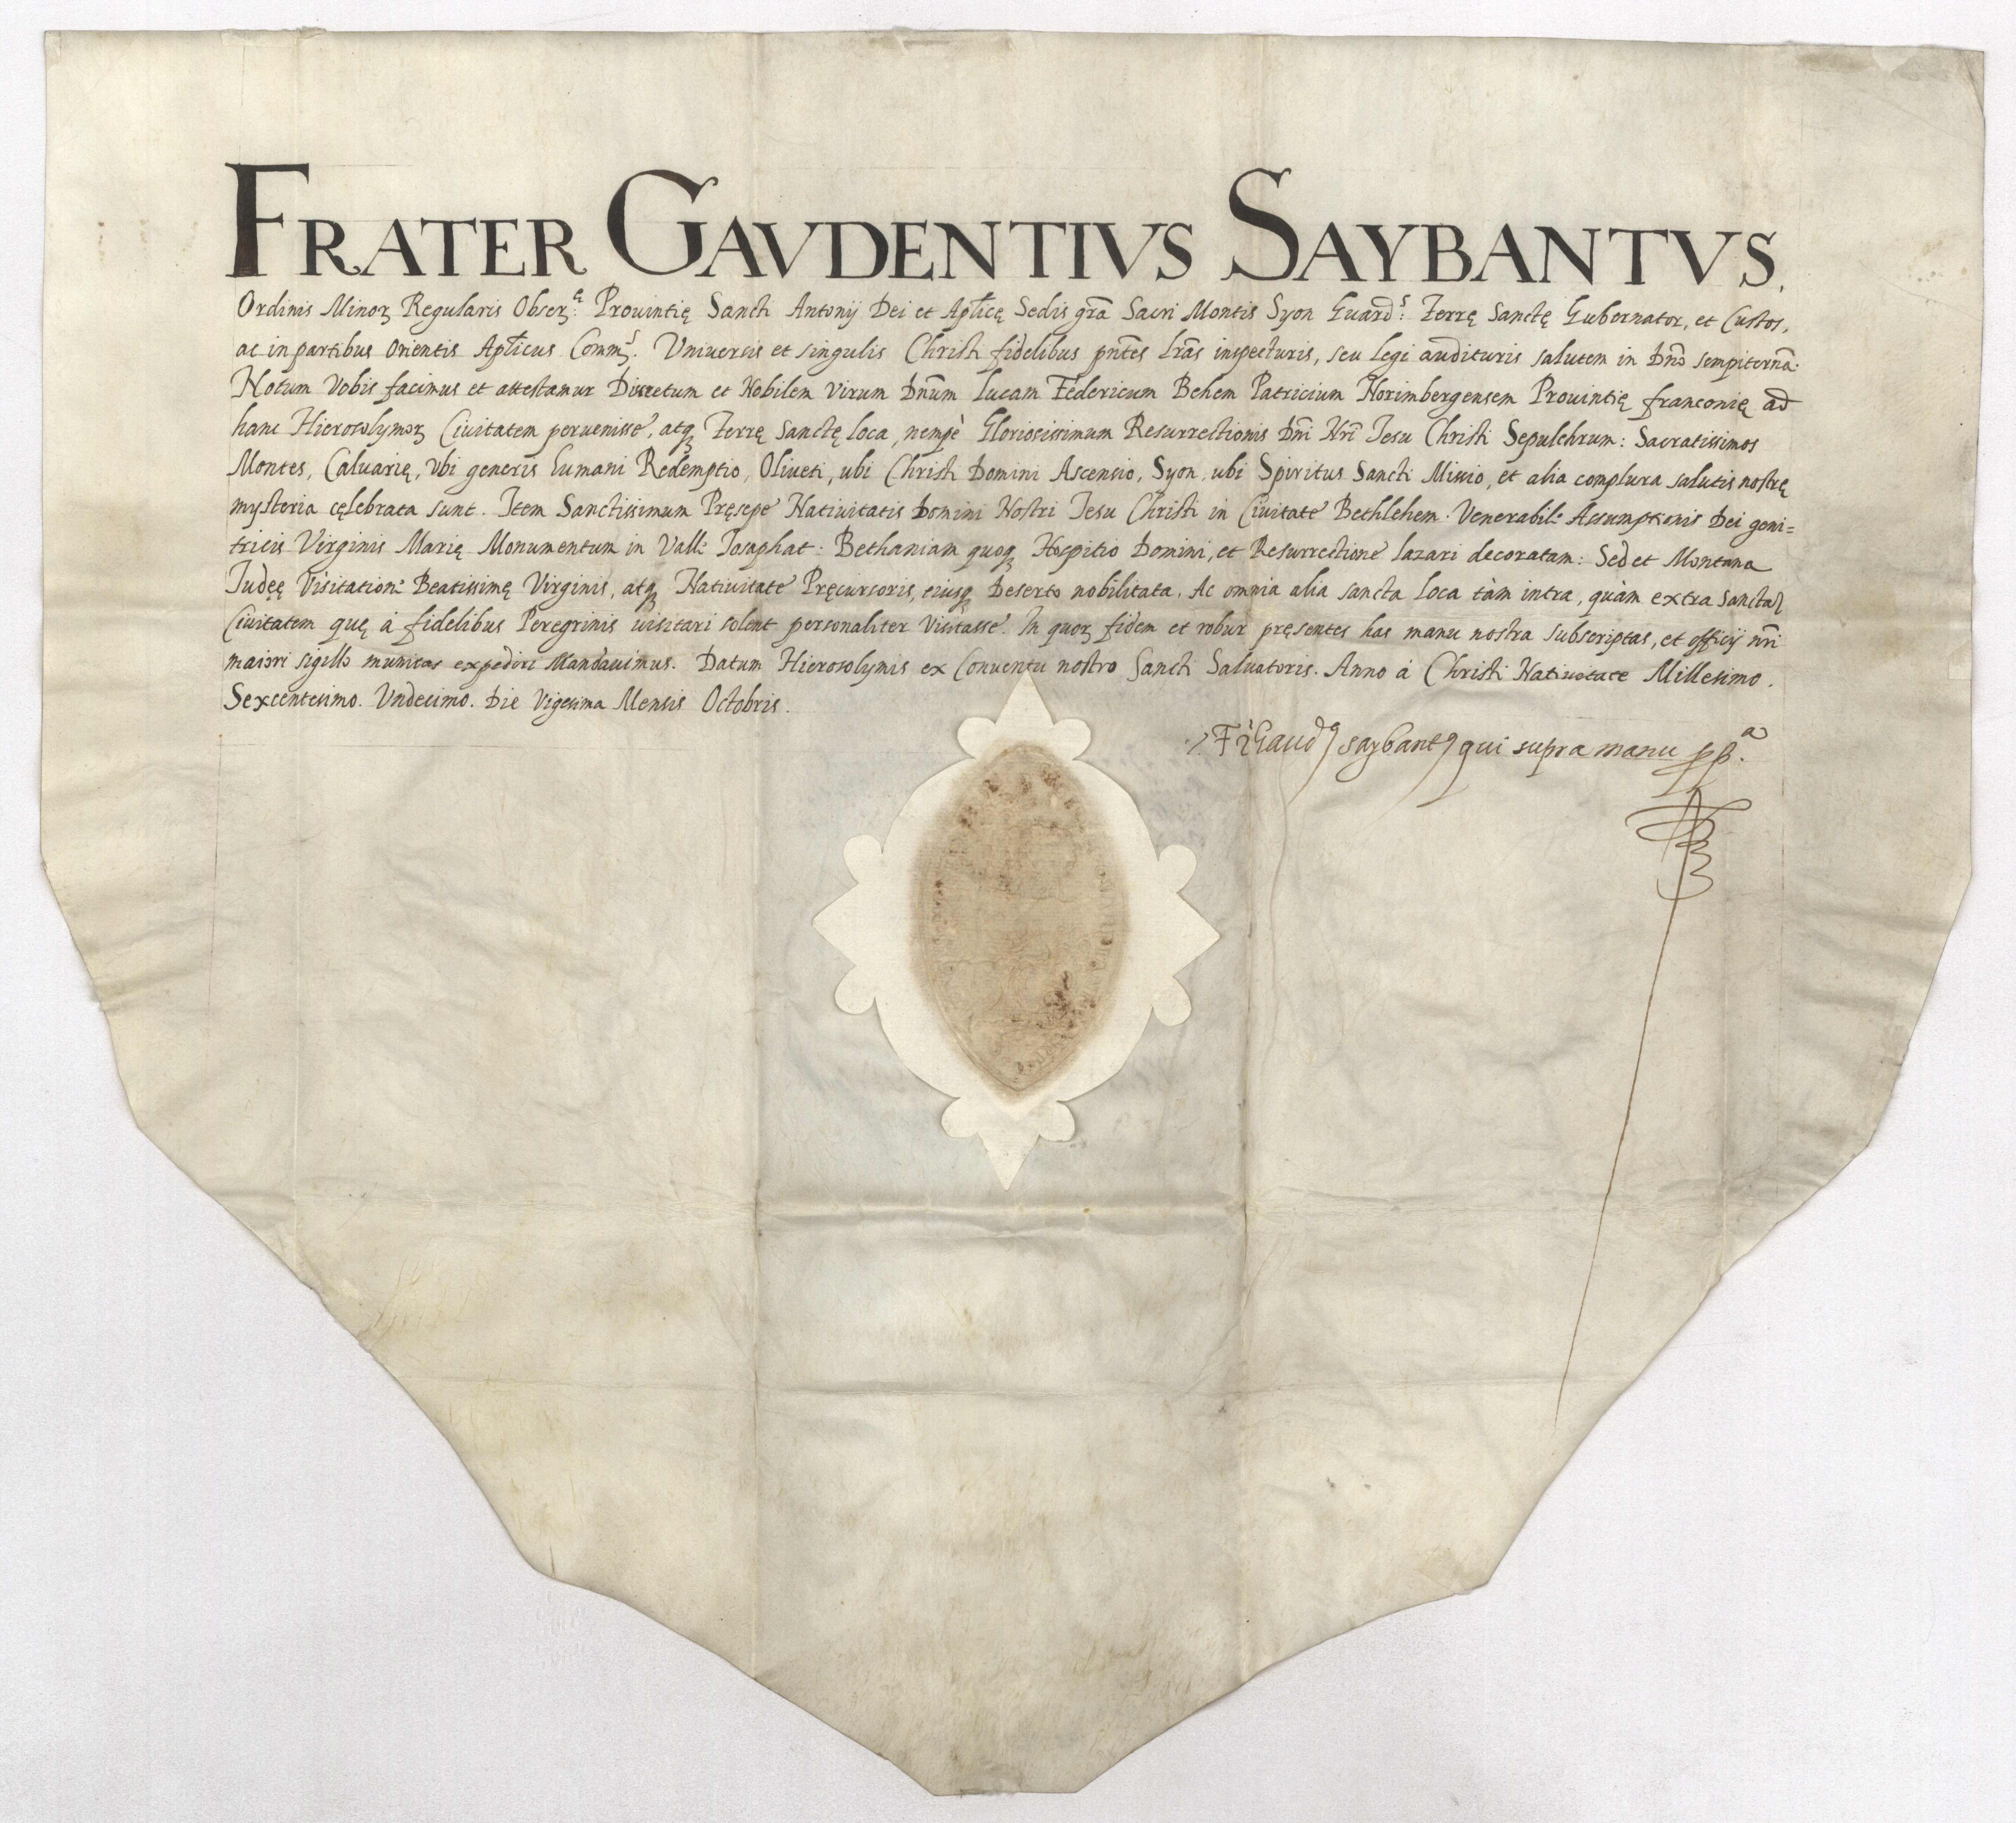 FRATER GAVDENTIVS SAYBANTVS,
Ordinis Minoꝝ Regularis Obserę: Prouintię Sancti Antonij Dei et Aplicę Sedis grã Sacri Montis Syon Guards: Terrę Sanctę Gubernator, et Custos,
ac in partibus Orientis Aplicus Comms. Vniuersis et singulis Christi fidelibus pñtes lrãs inspecturis, seu legi audituris salutem in Dño sempiternã.
Notum Vobis facimus et attestamur Discretum et Nobilem Virum Dñum Lucam Federicum Behem Patricium Norimbergensem Prouintię franconię ad
hanc Hierosolymoꝝ Ciuitatem peruenisse, atqꝫ Terrę Sanctę loca, nempè Gloriosissimum Resurrectionis Dñi Nrĩ Iesu Christi Sepulchrum: Sacratissimos
Montes, Caluarię, Vbi generis humani Redemptio, Oliueti, ubi Christi Domini Ascensio, Syon, ubi Spiritus Sancti Missio, et alia complura salutis nostrę
mysteria cęlebrata sunt. Item Sanctissimum Pręsepe Natiuitatis Domini Nostri Iesu Christi in Ciuitate Bethlehem. Venerabile Assumptionis Dei geni=
tricis Virginis Marię Monumentum in Valle Iosaphat: Bethaniam quoqꝫ Hospitio Domini, et Resurrectione lazari decoratam: Sed et Montana
Iudęę Visitatione Beatissimę Virginis, atqꝫ Natiuitate Pręcursoris, eiusqꝫ Deserto nobilitata. Ac omnia alia sancta loca tàm intra, quàm extra Sanctaꝫ
Ciuitatem quę à fidelibus Peregrinis uisitari solent personaliter Visitasse. In quoꝝ fidem et robur pręsentes has manu nostra subscriptas, et officij nrĩ
maiori sigillo munitas expediri Mandauimus. Datum Hierosolymis ex Conuentu nostro Sancti Saluatoris. Anno à Christi Natiuitate Millesimo.
Sexcentesimo. Vndecimo. Die Vigesima Mensis Octobris.
Fr Gaudꝰ saybantꝰ qui supra manu ppa.